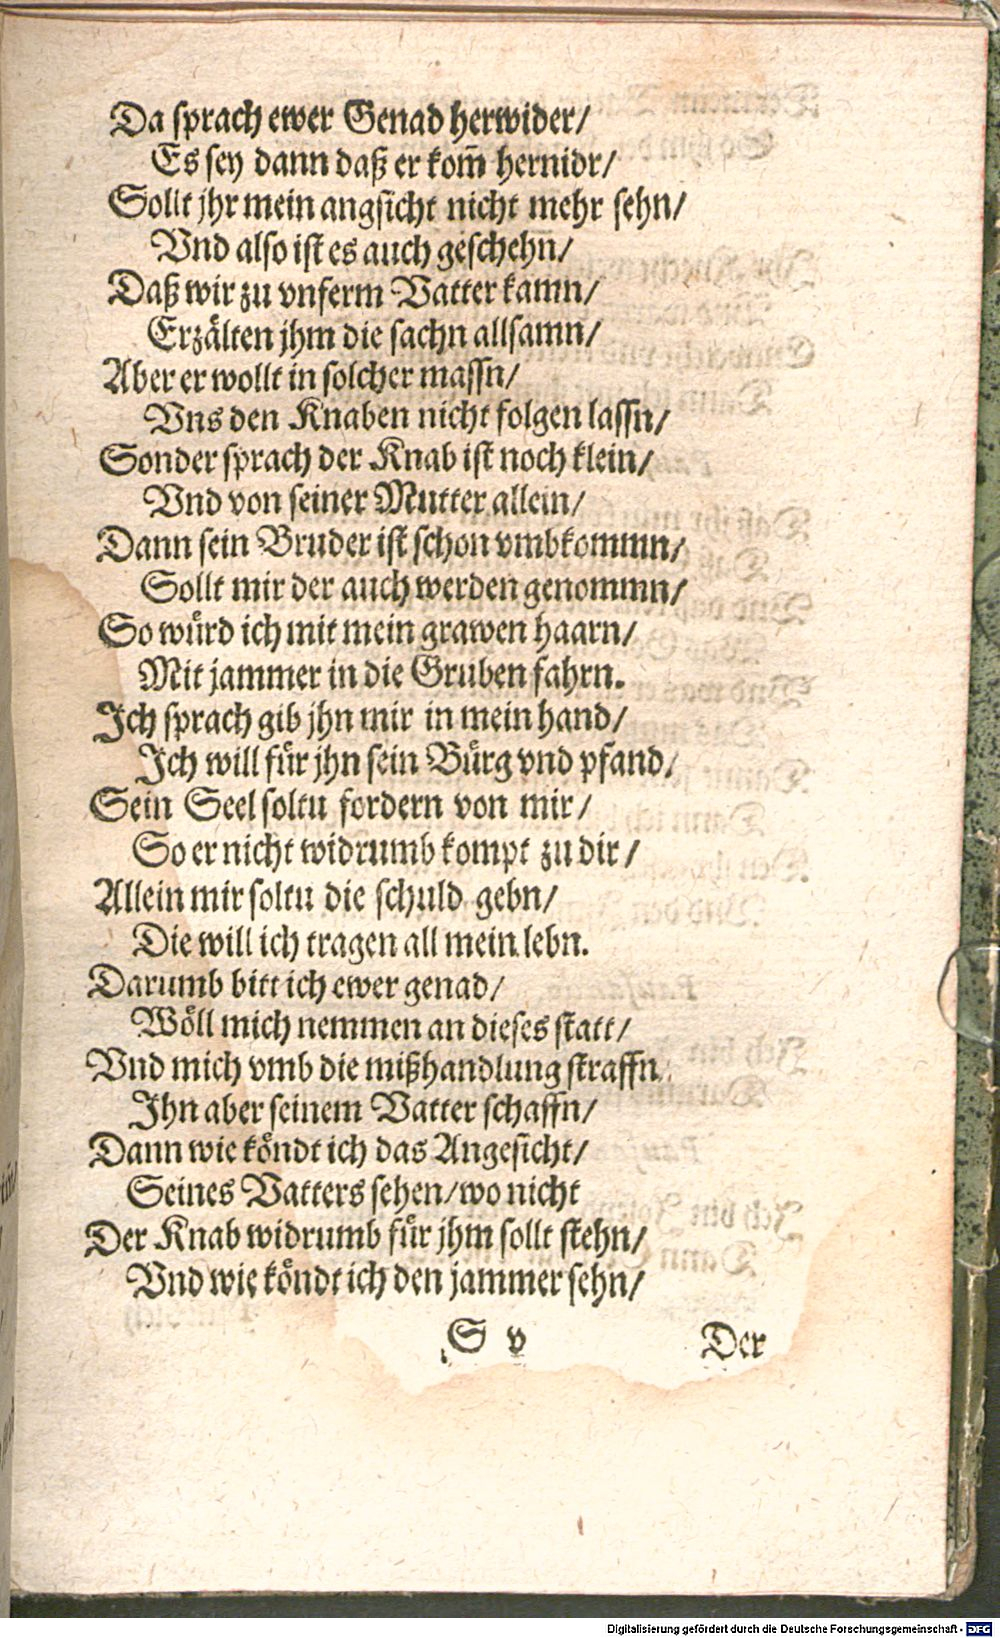 Da sprach ewer Genad herwider/
Es sey dann daß er kom̃ hernidr/
Sollt jhr mein angsicht nicht mehr sehn/
Vnd also ist es auch geschehn/
Daß wir zu vnserm Vatter kamn/
Erzälten jhm die sachn allsamn/
Aber er wollt in solcher massn/
Vns den Knaben nicht folgen lassn/
Sonder sprach der Knab ist noch klein/
Vnd von seiner Mutter allein/
Dann sein Bruder ist schon vmbkommn/
Sollt mir der auch werden genommn/
So würd ich mit mein grawen haarn/
Mit jammer in die Gruben fahrn.
Ich sprach gib jhn mir in mein hand/
Ich will für jhn sein Bürg vnd pfand/
Sein Seel soltu fordern von mir/
So er nicht widrumb kompt zu dir/
Allein mir soltu die schuld gebn/
Die will ich tragen all mein lebn.
Darumb bitt ich ewer genad/
Wöll mich nemmen an dieses statt/
Vnd mich vmb die mißhandlung straffn/
Ihn aber seinem Vatter schaffn/
Dann wie köndt ich das Angesicht/
Seines Vatters sehen/wo nicht
Der Knab widrumb für jhm sollt stehn/
Vnd wie köndt ich den jammer sehn/
S v Der
Digitalisierung gefördert durch die Deutsche Forschungsgemeinschaft - DFG